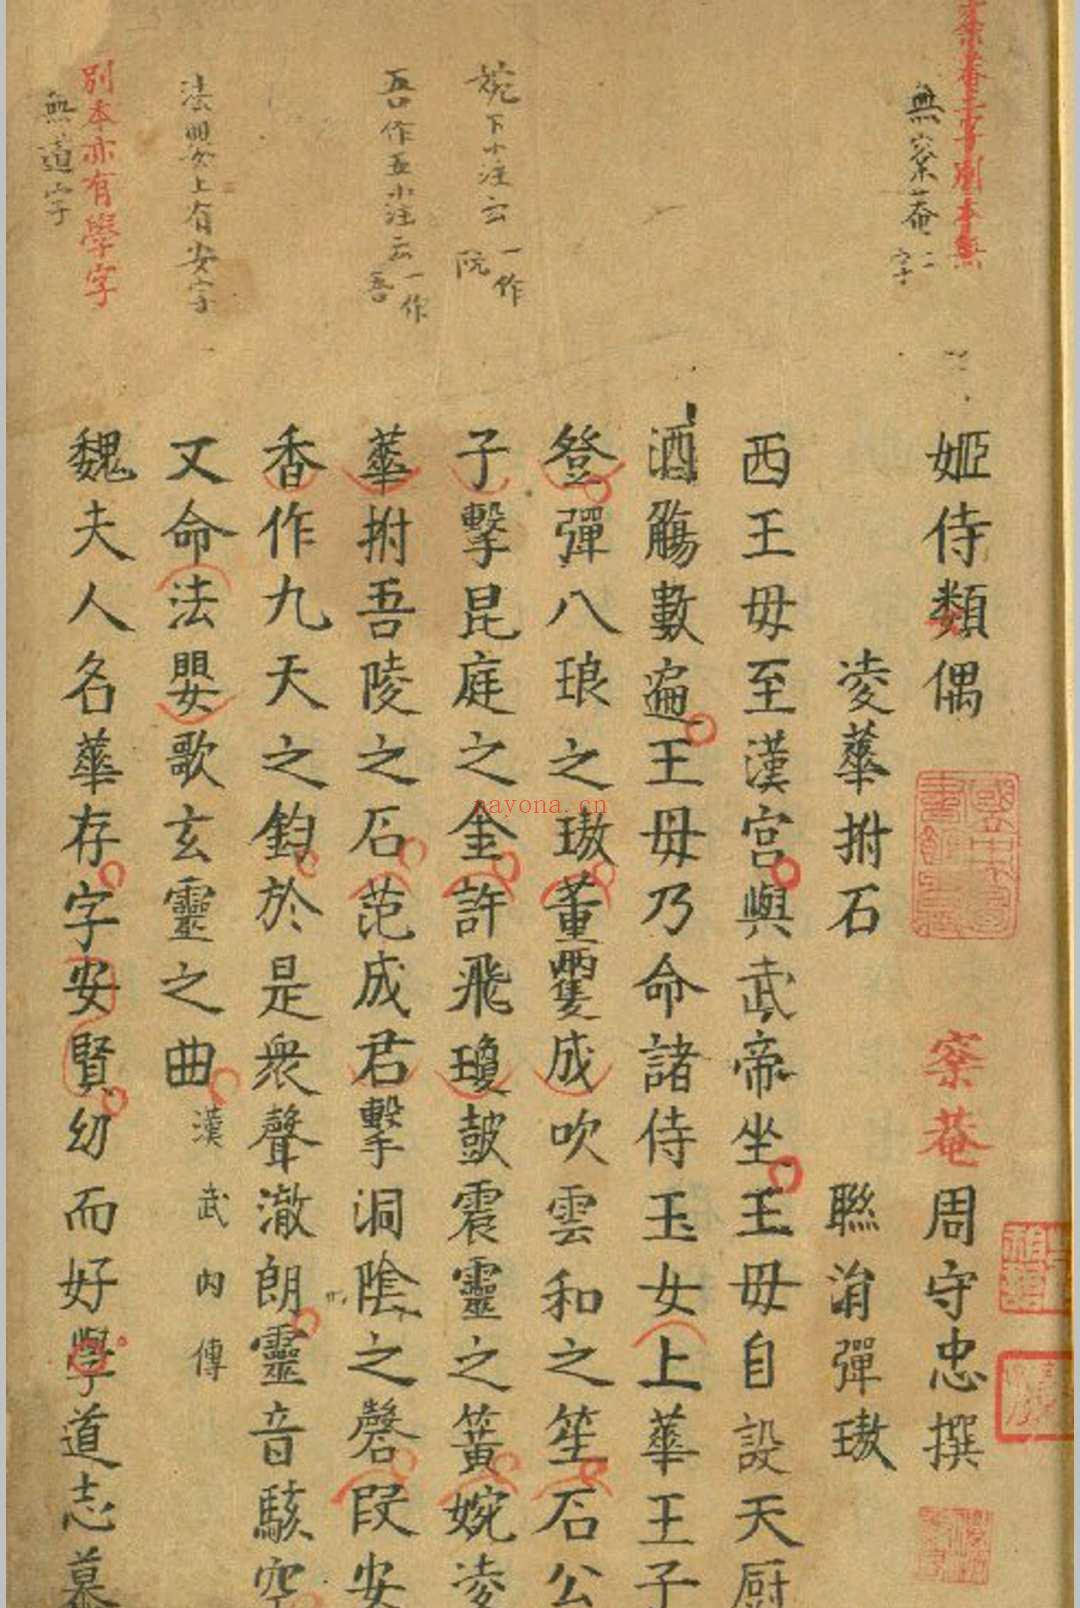 寮菴二字劉本無
無寮菴二字
婉下小注云一作阮
吾作五小注云一作吾
法嬰上有安字
別本亦有學字
無道字
姬侍類偶 寮菴周守忠撰
凌華拊石 聯涓彈璈
西王母至漢宮與武帝坐王母自設天廚
酒觴數遍王母乃命諸侍玉女上華王子
登彈八琅之璈董雙成吹雲和之笙石公
子擊昆庭之金許飛瓊鼓震靈之簧婉凌
華拊吾陵之石范成君擊洞陰之磬段安
香作九天之鈞於是衆聲澈朗靈音駭空
又命法嬰歌玄靈之曲漢武內傳
魏夫人名華存字安賢幼而好學道志慕
nayona.cn